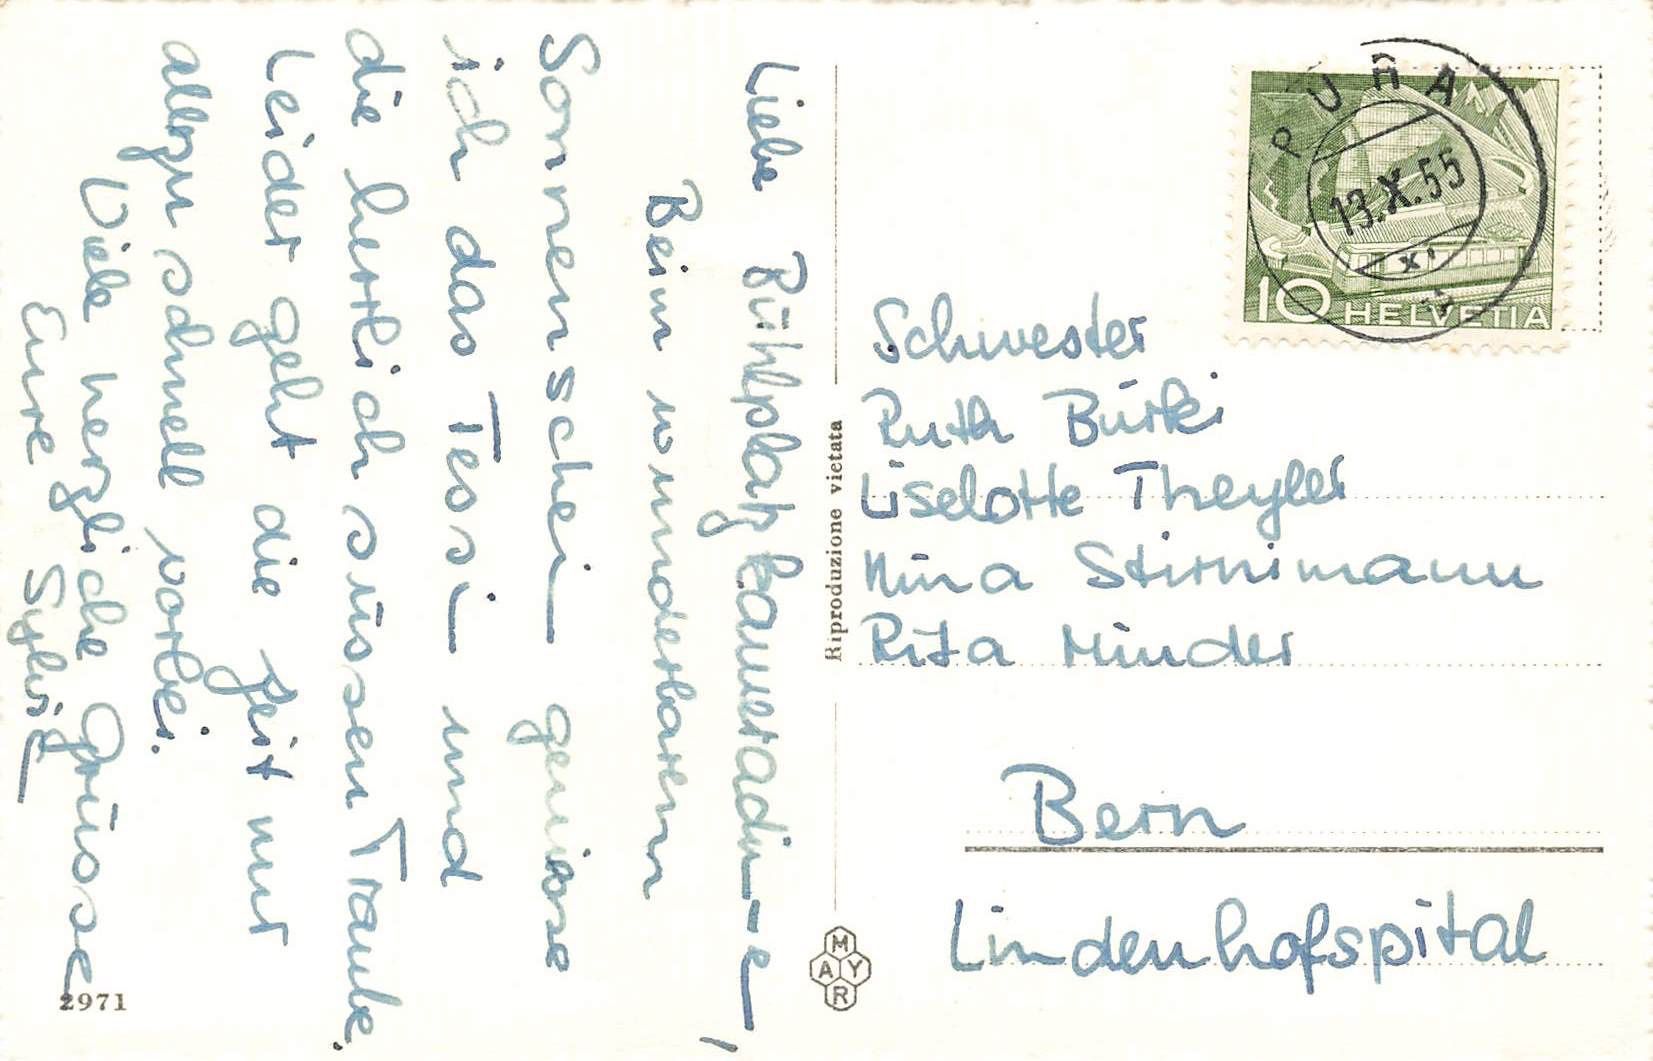 Liebe Bühlplatzkameradinne,
Beim wunderbaren
Sonnenschein geniesse
ich das Tessin und
die herrlich süssen Traube.
Leider geht die Zeit nur
allzu schnell vorbei.
Viele herzliche Grüsse
Eure Sylvie
2971
Riproduzione vietata
MAYR
PURA
13.X.55
XI
10 HELVETIA
Schwester
Ruth Bürki
Liselotte Theyler
Nina Stirnimann
Rita Minder
Bern
Lindenhofspital